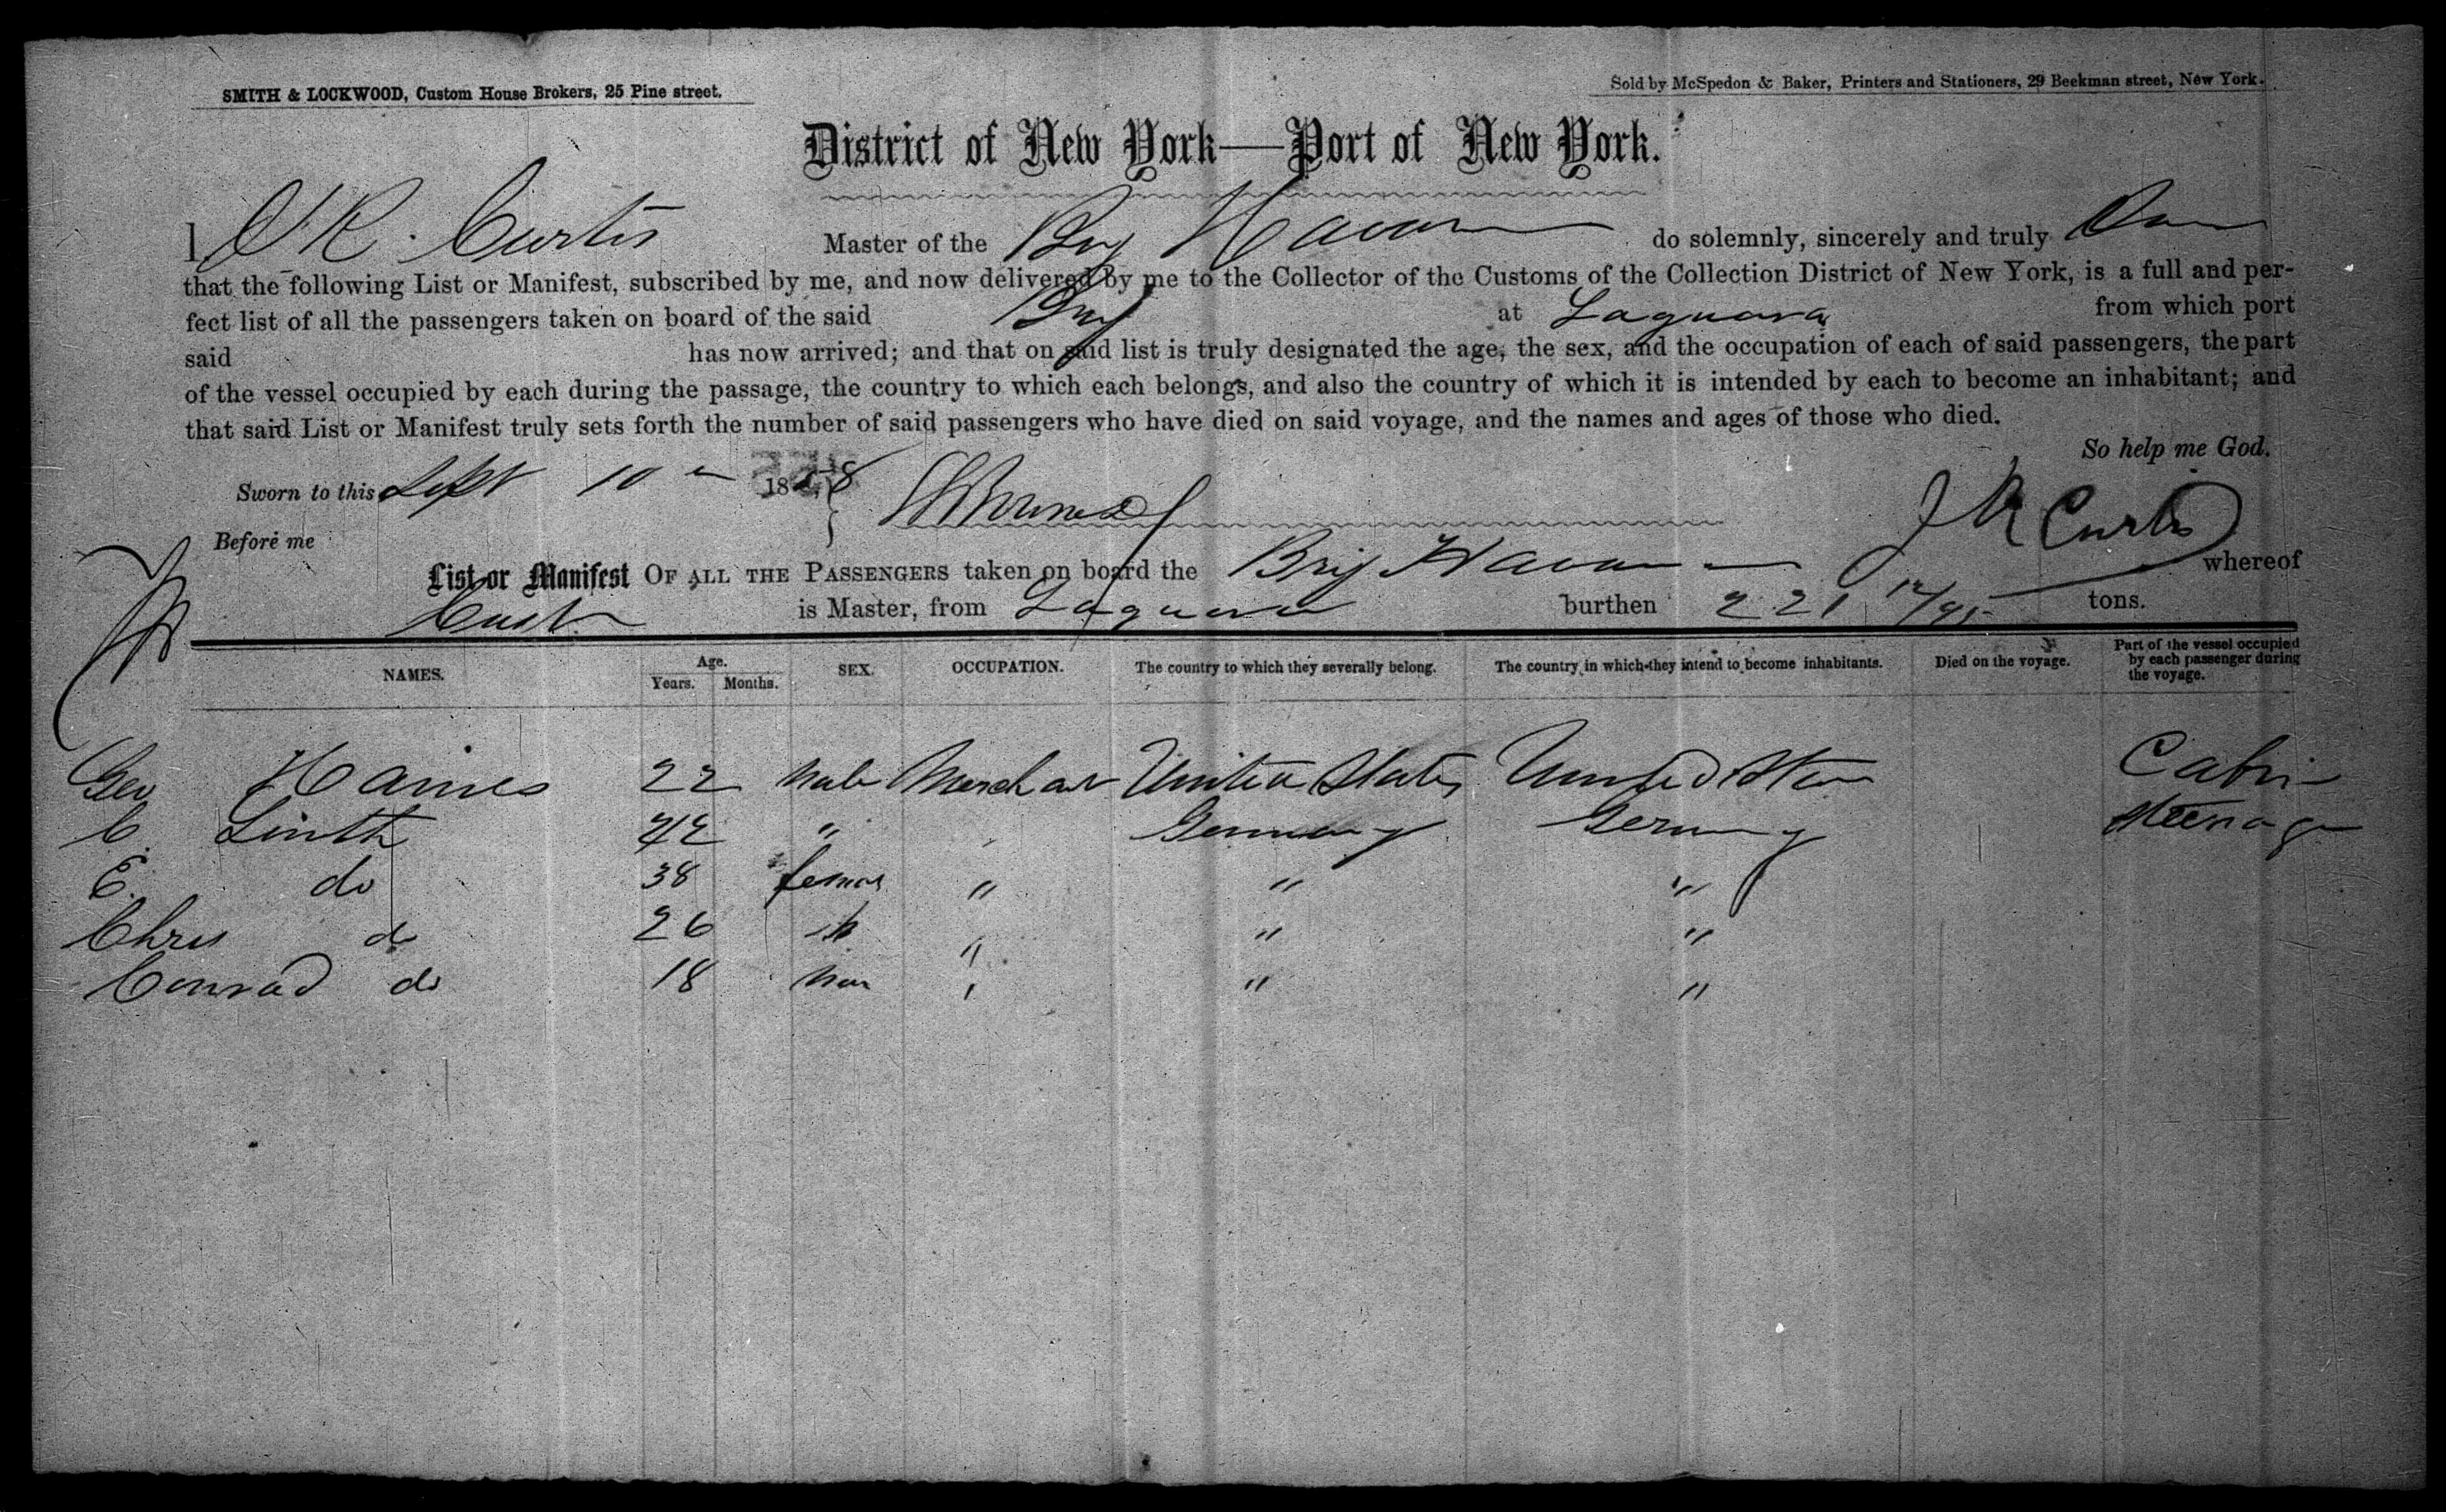 SMITH & LOCKWOOD, Custom House Brokers, 25 Pine street.
Sold by McSpedon & Baker, Printers and Stationers, 29 Beekman street, New York.
District of New York—Port of New York.
I, J R. Curtis Master of the Brig Havana do solemnly, sincerely and truly
that the following List or Manifest, subscribed by me, and now delivered by me to the Collector of the Customs of the Collection District of New York, is a full and per-
fect list of all the passengers taken on board of the said Brig at Laguara from which port
said has now arrived; and that on said list is truly designated the age, the sex, and the occupation of each of said passengers, the part
of the vessel occupied by each during the passage, the country to which each belongs, and also the country of which it is intended by each to become an inhabitant; and
that said List or Manifest truly sets forth the number of said passengers who have died on said voyage, and the names and ages of those who died.
So help me God.
Sworn to this Sept 10 1858
J R Curtis
Before me
List or Manifest OF ALL THE PASSENGERS taken on board the Brig Havana whereof
is Master, from Laguara burthen 221 tons.
NAMES. Age. Years. Months. SEX. OCCUPATION. The country to which they severally belong. The country in which they intend to become inhabitants. Died on the voyage. Part of the vessel occupied by each passenger during the voyage.
Geo Haines 22 Male Merchant United States United States Cabin
C. Linth 42 " Germany Germany Steerage
E. do 38 female " " "
Chris do 26 " " "
Conrad do 18 " " "